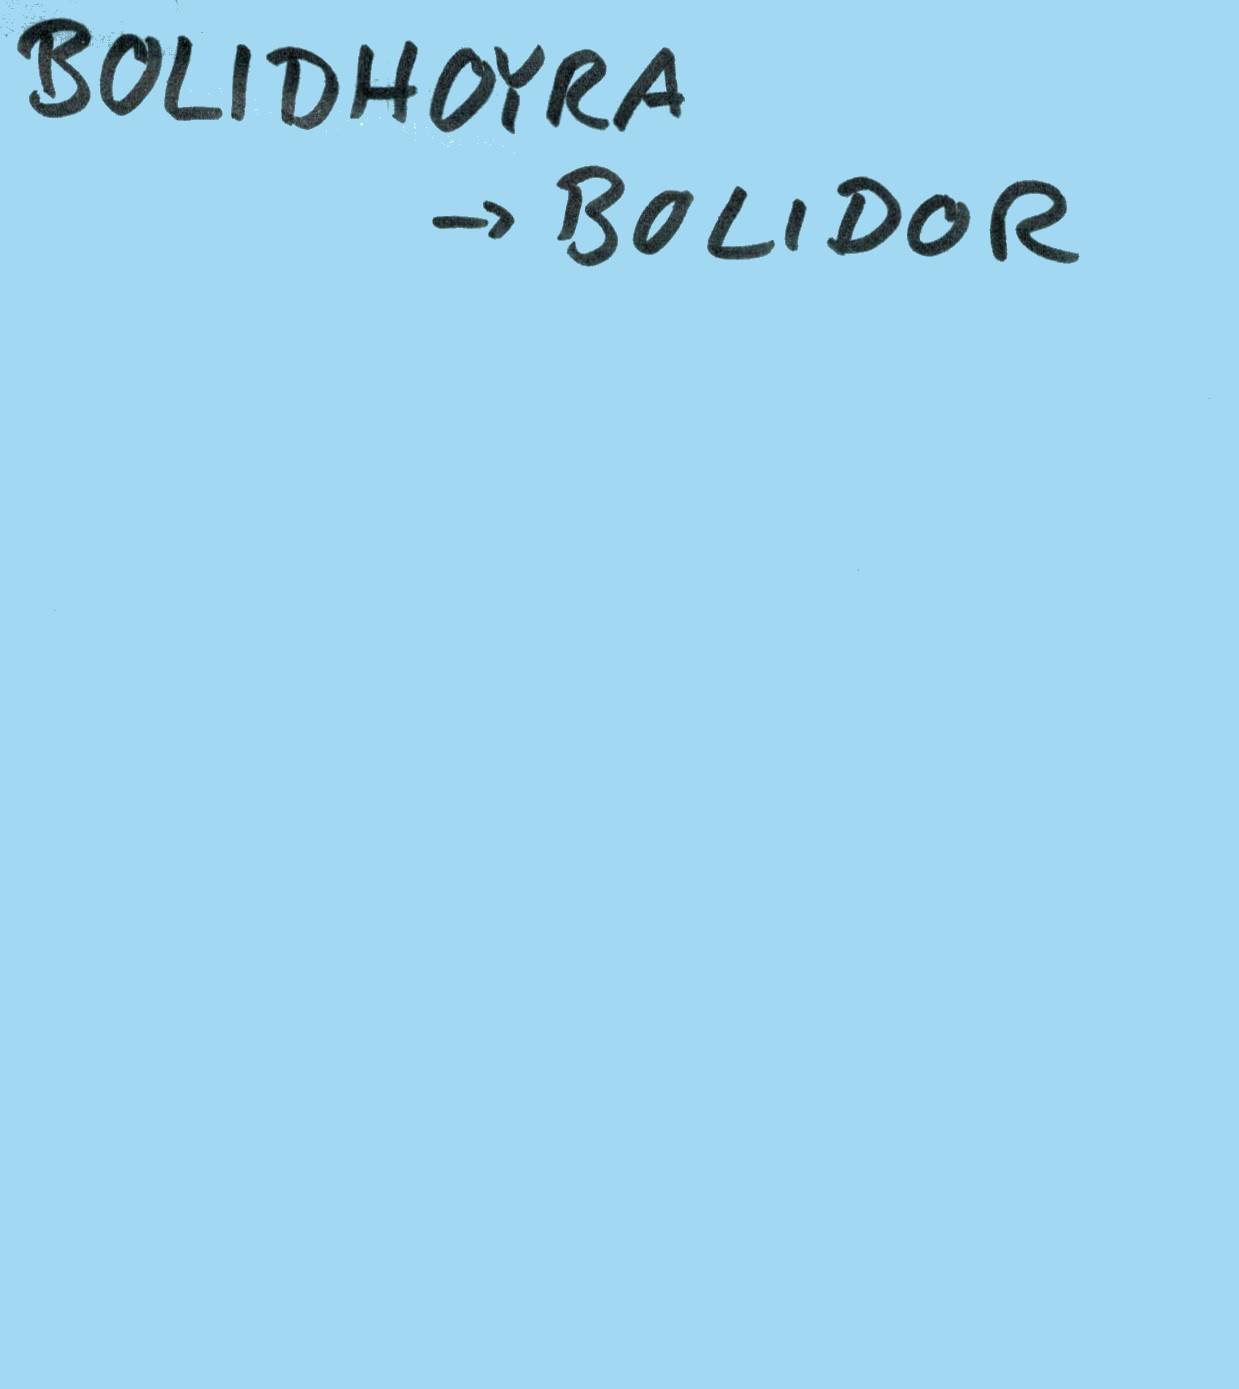 BOLIDHOYRA
→ BOLIDOR